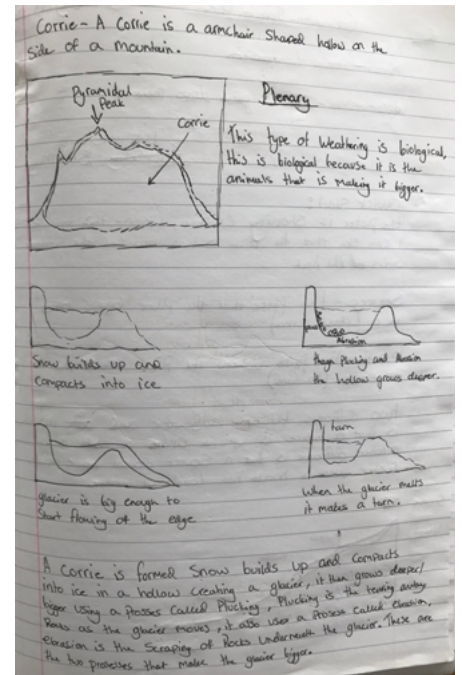 Corrie - A Corrie is a armchair Shaped hollow on the
Side of a mountain.
Pyramidal
Peak
Corrie
Plenary
This type of Weathering is biological,
this is biological because it is the
animals that is making it bigger.
Snow builds up and
Compacts into ice
Plucking and Abrasion
the hollow grows deeper.
Abrasion
glacier is big enough to
Start flowing of the edge
tarn
When the glacier melts
it makes a tarn.
A Corrie is formed Snow builds up and Compacts
into ice in a hollow creating a glacier, it then grows deeper/
bigger using a Prosses Called Plucking, Plucking is the tearing away
Rocks as the glacier moves, it also uses a Prosess called ebrasion,
ebrasion is the Scraping of Rocks underneath the glacier. These are
the two prosesses that make the glacier bigger.